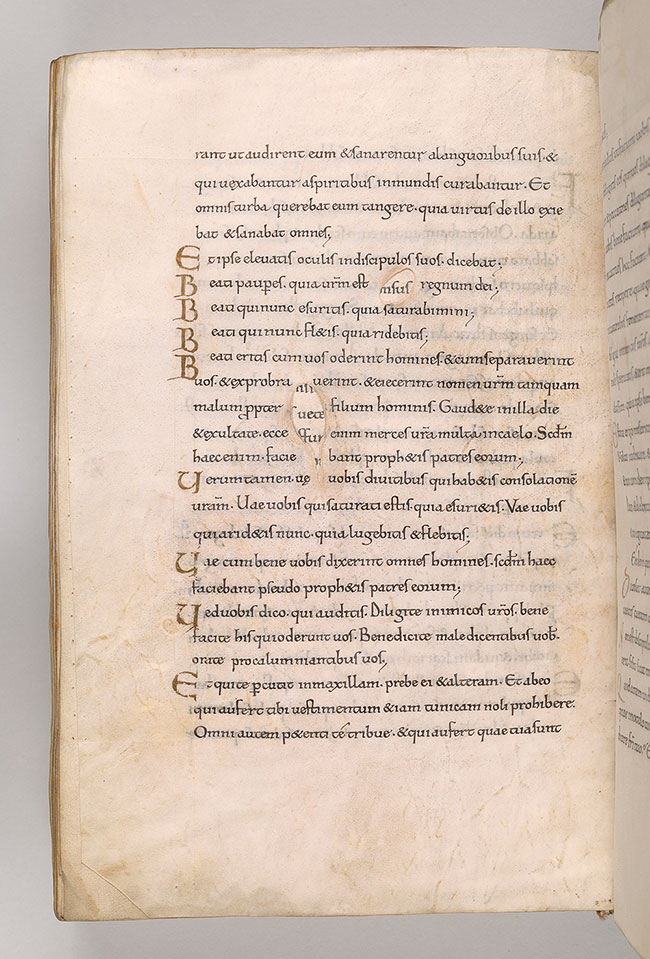 rant ut audirent eum & sanarentur alanguoribus suis. &
qui uexabantur aspiritibus inmundis curabantur. Et
omnis turba querebat eum tangere. quia virtus de illo exie
bat & sanabat omnes;
Et ipse eleuatis oculis indiscipulos suos. dicebat;
Beati pauperes. quia urm̄ est regnum dei;
Beati qui nunc esuritis. quia saturabimini;
Beati qui nunc fl&is. quia ridebitis;
Beati eritis cum uos oderint homines. & cum separauerint
uos. & exprobra uerint. & eiecerint nomen urm̄ tamquam
malum ꝓpter filium hominis. Gaud&e in illa die
& exultate. ecce enim merces ur̄a multa in caelo. Scdm̄
haec enim. facie bant proph&is patres eorum;
Uerumtamen. uę uobis diuitibus qui hab&is consolationē
uram̄. Uae uobis qui saturati estis. quia esuri&is. Vae uobis
qui arid&is nunc. quia lugebitis & flebitis;
Uae cum bene uobis dixerint omnes homines. scdm̄ haec
faciebant pseudo proph&is patres eorum;
Ued uobis dico. qui auditis. Diligite inimicos ur̄os. bene
facite his qui oderunt uos. Benedicite maledicentibus uob̄.
orate pro calumniantibus uos;
Et qui te ꝑcutit in maxillam. prebe ei & alteram. Et ab eo
qui aufert tibi uestimentum & iam tunicam noli prohibere.
Omni autem p&enti té tribue. & qui aufert quae tua sunt